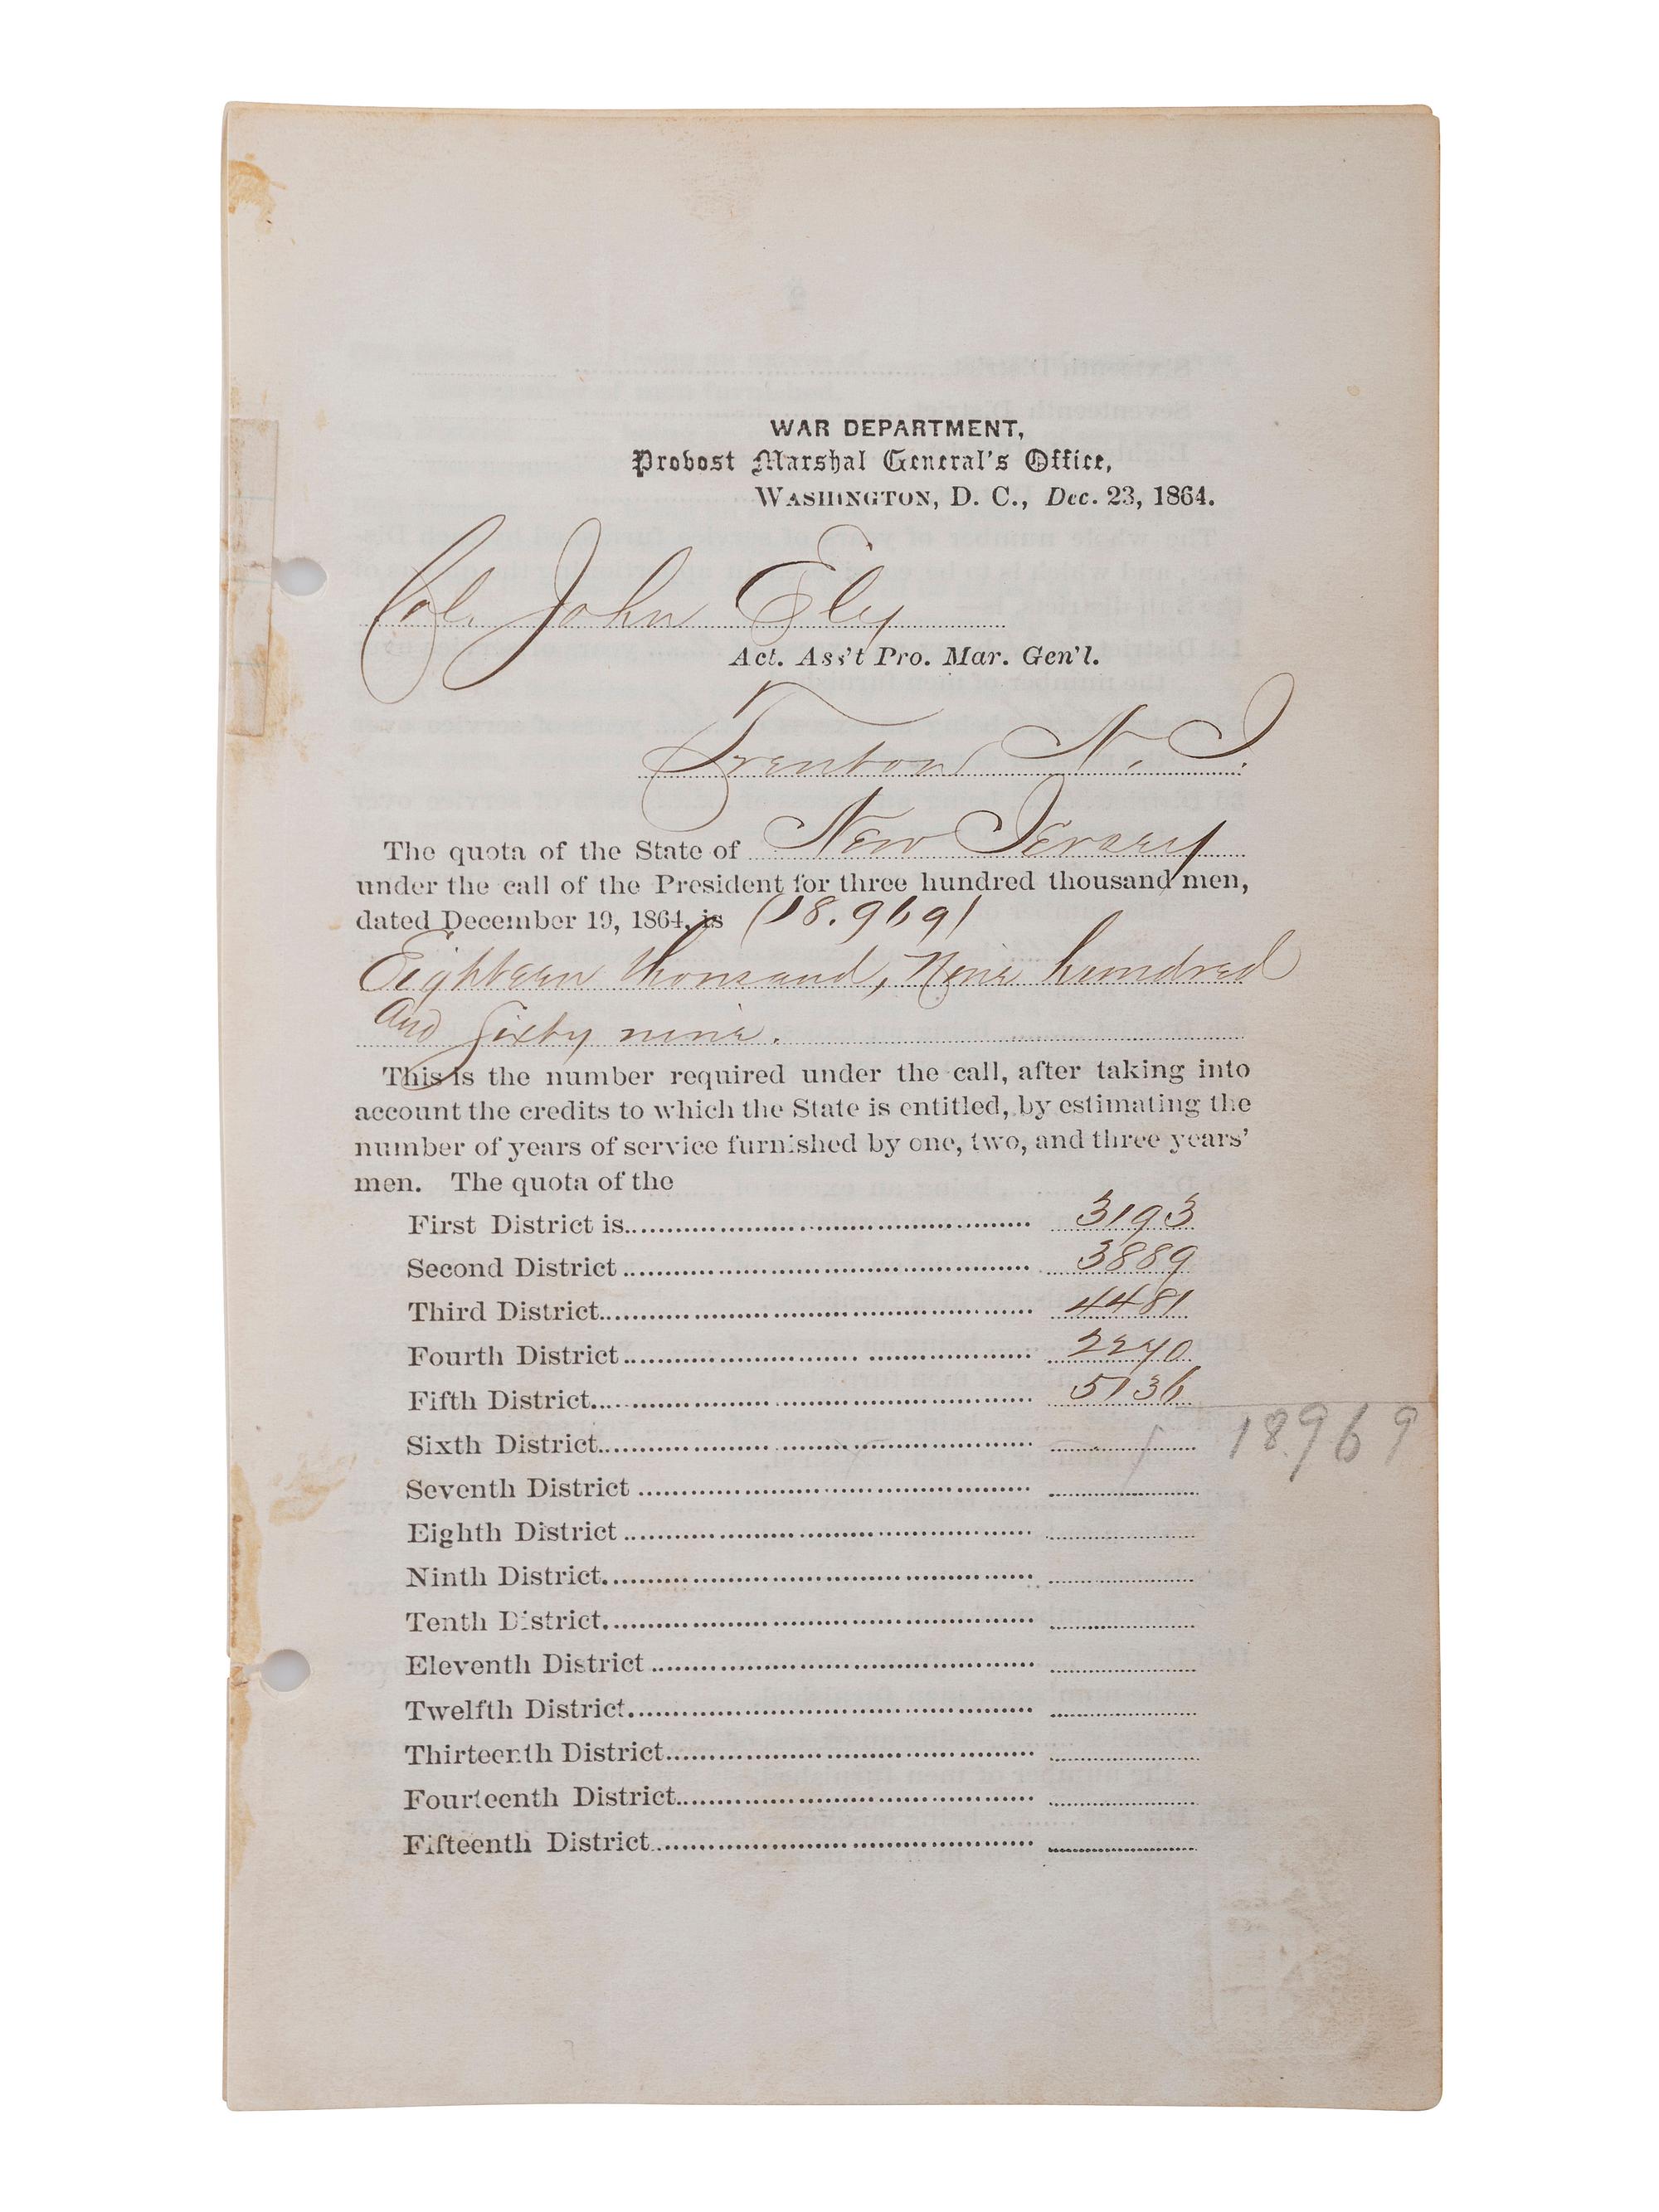 WAR DEPARTMENT,
Provost Marshal General's Office,
WASHINGTON, D. C., Dec. 23, 1864.
Col. John Ely
Act. Ass't Pro. Mar. Gen'l.
Trenton N. J.
The quota of the State of New Jersey
under the call of the President for three hundred thousand men,
dated December 19, 1864, is (18.969)
Eighteen thousand, Nine hundred
and Sixty nine.
This is the number required under the call, after taking into
account the credits to which the State is entitled, by estimating the
number of years of service furnished by one, two, and three years'
men. The quota of the
First District is 3193
Second District 3889
Third District 4481
Fourth District 2270
Fifth District 5136
18969
Sixth District
Seventh District
Eighth District
Ninth District
Tenth District
Eleventh District
Twelfth District
Thirteenth District
Fourteenth District
Fifteenth District